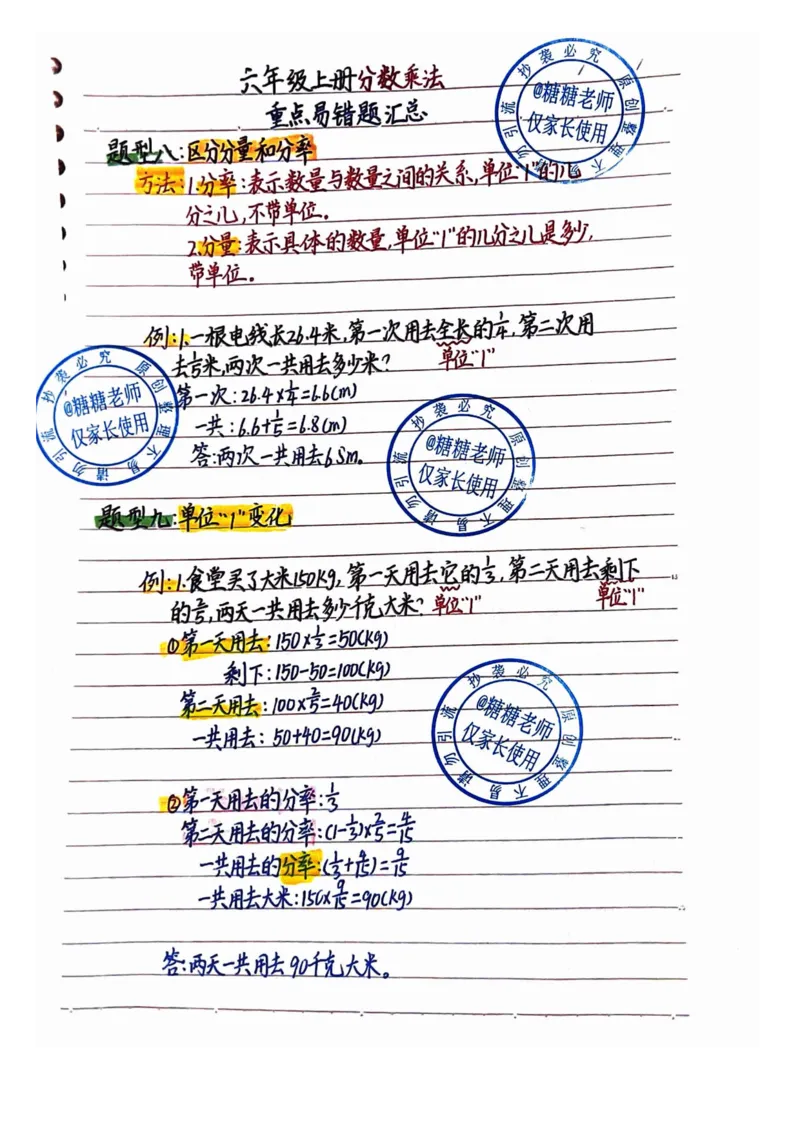 六年级上册分数乘法
重点易错题汇总
题型八:区分分量和分率
方法:1.分率:表示数量与数量之间的关系,单位"1"的几
分之几,不带单位。
2.分量:表示具体的数量,单位"1"的几分之几是多少,
带单位。
例:1.一根电线长26.4米,第一次用去全长的1/4,第二次用
去1/5米,两次一共用去多少米? 单位"1"
第一次:26.4×1/4=6.6(m)
一共:6.6+1/5=6.8(m)
答:两次一共用去6.8m。
题型九:单位"1"变化
例:1.食堂买了大米150kg,第一天用去它的1/3,第二天用去剩下
的2/5,两天一共用去多少千克大米? 单位"1" 单位"1"
①第一天用去:150×1/3=50(kg)
剩下:150-50=100(kg)
第二天用去:100×2/5=40(kg)
一共用去:50+40=90(kg)
②第一天用去的分率:1/3
第二天用去的分率:(1-1/3)×2/5=4/15
一共用去的分率:(1/3+4/15)=9/15
一共用去大米:150×9/15=90(kg)
答:两天一共用去90千克大米。
@糖糖老师
仅家长使用
原创整理 不易 请勿引流 抄袭必究
@糖糖老师
仅家长使用
原创整理 不易 请勿引流 抄袭必究
@糖糖老师
仅家长使用
原创整理 不易 请勿引流 抄袭必究
@糖糖老师
仅家长使用
原创整理 不易 请勿引流 抄袭必究